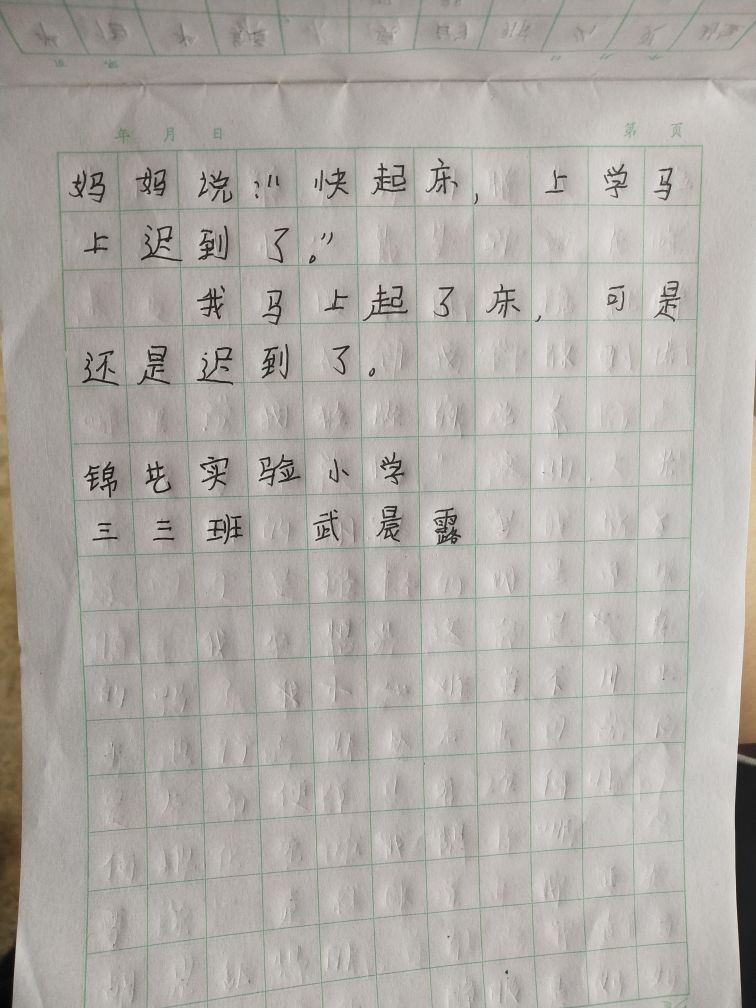 年 月 日 第 页
妈妈说:“快起床,上学马
上迟到了。”
我马上起了床,可是
还是迟到了。
锦屯实验小学
三三班 武晨露